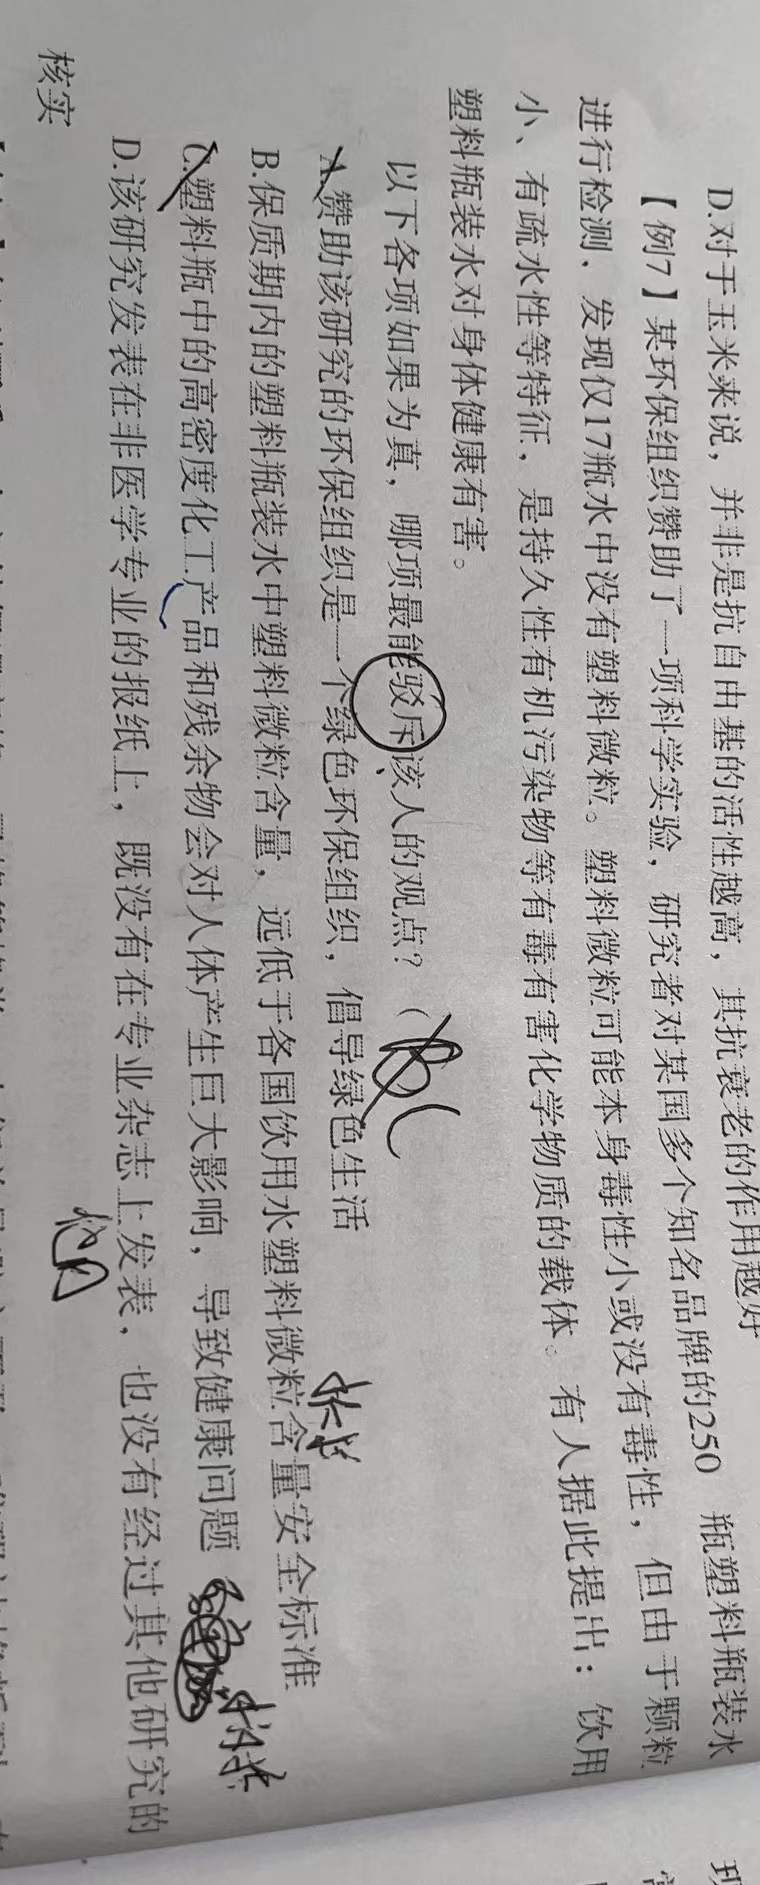 D.对于玉米来说，并非是抗自由基的活性越高，其抗衰老的作用越好
【例7】某环保组织赞助了一项科学实验，研究者对某国多个知名品牌的250 瓶塑料瓶装水
进行检测，发现仅17瓶水中没有塑料微粒。塑料微粒可能本身毒性小或没有毒性，但由于颗粒
小、有疏水性等特征，是持久性有机污染物等有毒有害化学物质的载体。有人据此提出：饮用
塑料瓶装水对身体健康有害。
以下各项如果为真，哪项最能驳斥该人的观点？（
A.赞助该研究的环保组织是一个绿色环保组织，倡导绿色生活
B.保质期内的塑料瓶装水中塑料微粒含量，远低于各国饮用水塑料微粒含量安全标准
C.塑料瓶中的高密度化工产品和残余物会对人体产生巨大影响，导致健康问题
D.该研究发表在非医学专业的报纸上，既没有在专业杂志上发表，也没有经过其他研究的
核实